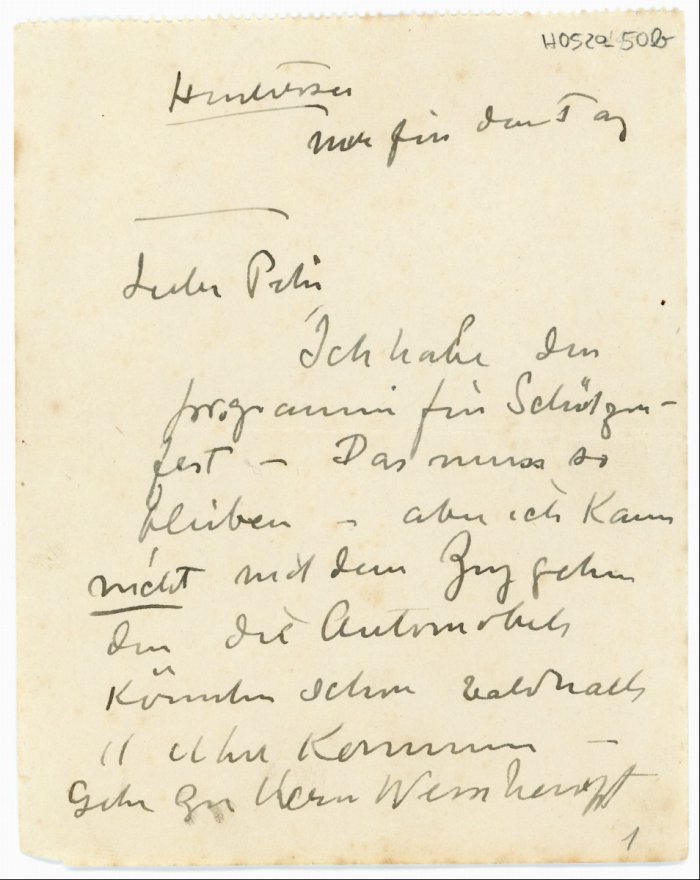 H0520-50b
nur für den Tag
Lieber Peter
Ich habe den
programm für Schützen-
fest – Das muss so
bleiben – aber ich kann
nicht mit dem Zug gehen
den die Automobils
könnten schon bald nach
11 Uhr kommen –
Gehe zu Herrn
1